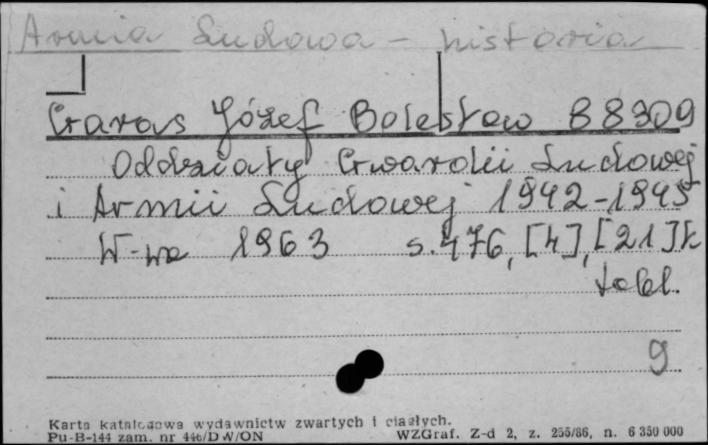 Armia Ludowa - historia
Garas Józef Bolesław 88309
Oddziały Gwardii Ludowej
i Armii Ludowej 1942-1945
W-wa 1963 s. 476, [4], [21] k
tabl.
9
Karta katalogowa wydawnictw zwartych i ciągłych.
Pu-B-144 zam. nr 446/DW/ON WZGraf. Z-d 2, z. 255/86, n. 6 350 000